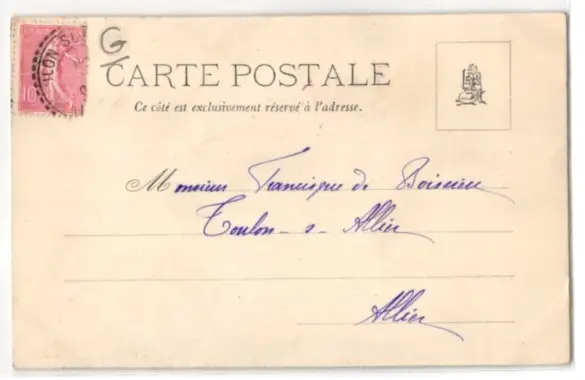 10
G
CARTE POSTALE
Ce côté est exclusivement réservé à l'adresse.
Monsieur Francisque de
Toulon-s-Allier
Allier